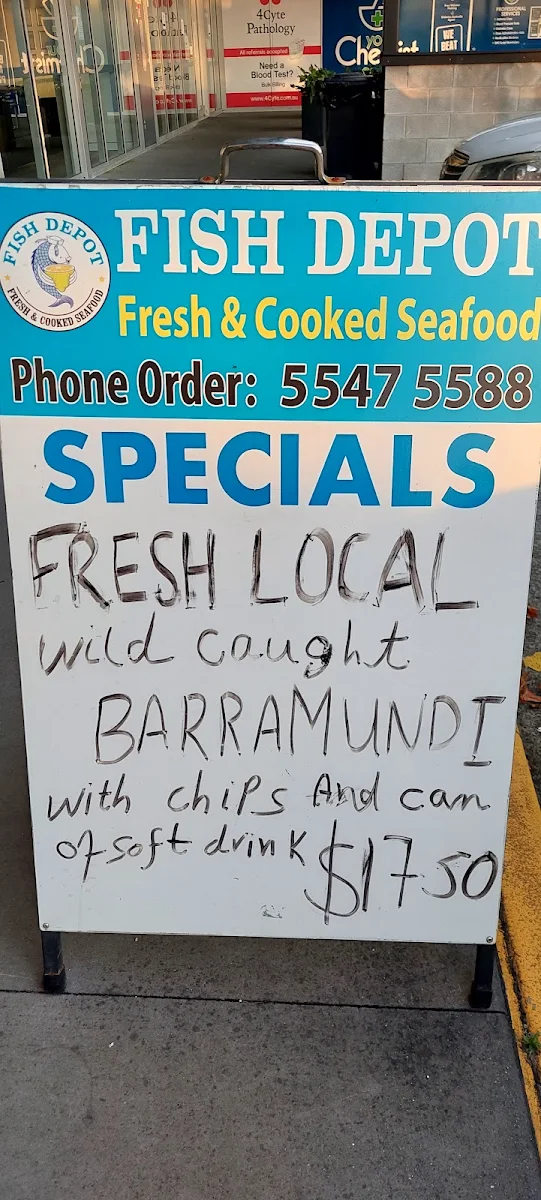 4Cyte
Pathology
All referrals accepted
Need a
Blood Test?
Bulk Billing
www.4Cyte.com.au
yo
Che
ist
PROFESSIONAL
SERVICES
WE
BEAT
FISH DEPOT
FRESH & COOKED SEAFOOD
FISH DEPOT
Fresh & Cooked Seafood
Phone Order: 5547 5588
SPECIALS
FRESH LOCAL
wild caught
BARRAMUNDI
with chips And can
of soft drink $17.50